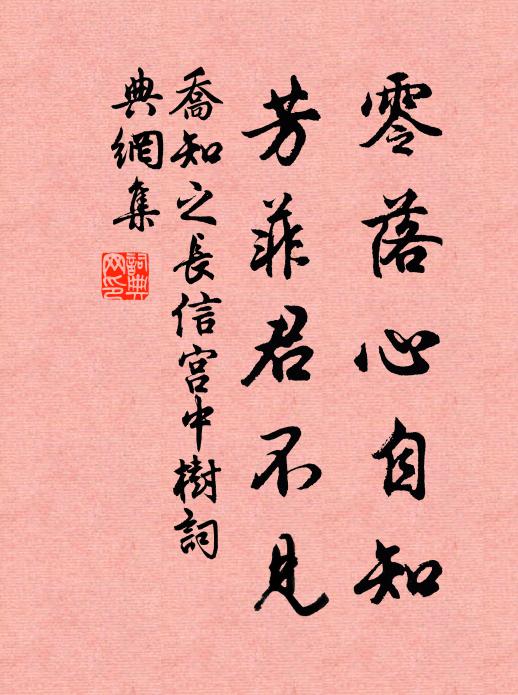 零落心自知
芳菲君不見
喬知之長信宮中樹詞
典網集
詞典網印